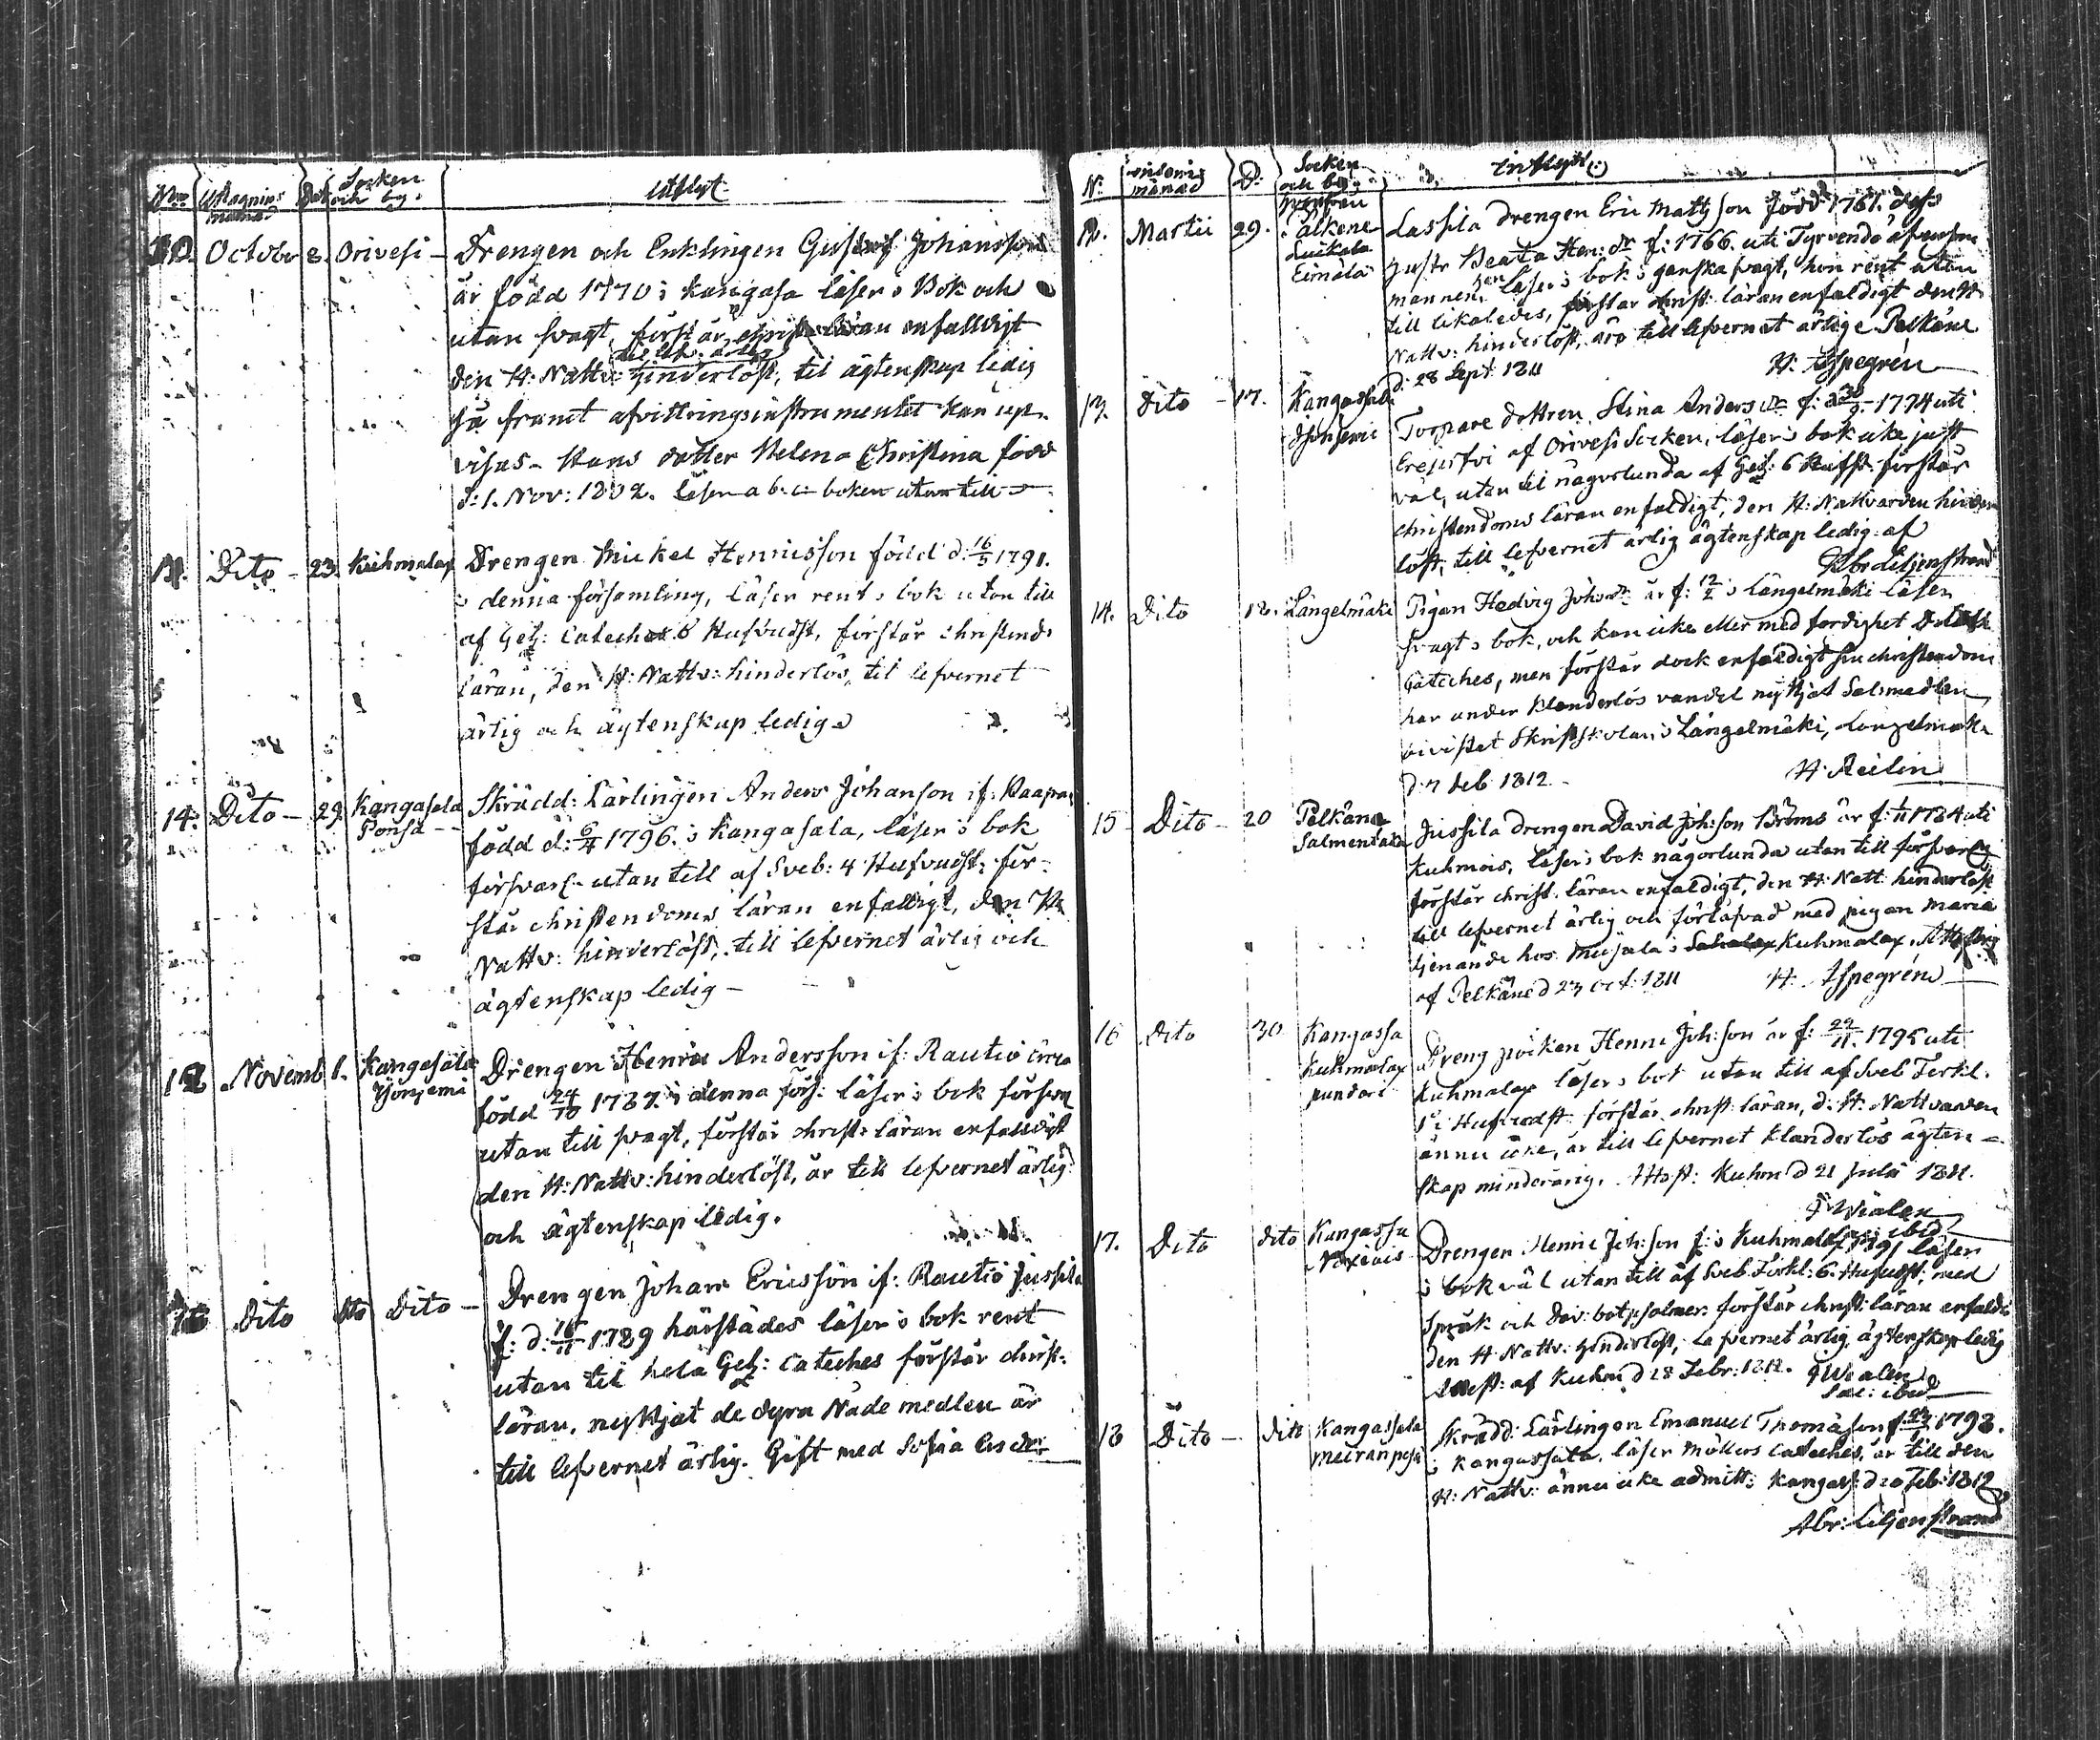 Socken
Dat och by.
Utflyt
10. October 2. Orivesi – Drengen och Enklingen Gustaf Johansson
är född 1770 i Kangasa läser i Bok och
utan svagt, förstår christ: läran enfalldigt
den H: Nattv: hinderlöst, til ägtenskap ledig
så framt afvittringsinstrumentet kan up-
visas – Hans dotter Helena Christina född
d: 1. Nov: 1802. läser a b. c boken utan till
Dito – 23. Kuhmalax Drengen Michel Hennicsson född d: 16/5 1791.
i denna församling, läser rent i bok utan till
af Gez: Cateches 6 Hufvudst, förstår christend:
läran, den H: Nattv: hinderlös, til lefvernet
ärlig och ägtenskap ledig
14. Dito – 29. Kangasala Skrädd: Lärlingen Anders Johanson if:
Ponsa – – född d: 6/4 1796. i Kangasala, läser i bok
försvarl: utan till af Sveb: 4 Hufvudst: för-
står christendoms läran enfalldigt, den H:
Nattv: hinderlöst, till lefvernet ärlig och
ägtenskap ledig –
Novemb 1. Kangasala Drengen Henric Andersson if: Rautio
född 24/10 1787. i denna förs: läser i bok försvarl
utan till svagt, förstår christ: läran enfalldigt
den H: Nattv: hinderlöst, är till lefvernet ärlig
och ägtenskap ledig.
Dito dto Dito – Drengen Johan Ericsson if: Rautio Jussila
f: d: 16/11 1789 härstädes läser i bok rent
utan til hela Gez: Cateches förstår christ:
läran, nyttjat de dyra Nåde medlen är
till lefvernet ärlig. Gift med Sofia
N: månad D: Socken
och by Inflyt
12. Martii 29. Pälkene Lassila Drengen Eric Mattsson född 1761. dess
Luikala hustr Beata Hen: dr f: 1766. uti Tyrvendö
mannen läser i bok ganska svagt, hon rent utan
till likaledes, förstår christ: läran enfaldigt den H:
Nattv: hinderlöst, äro till lefvernet ärlige Pelkäne
d: 28 Sept: 1811 H: Ispegrén
13. Dito – 17. Kangassala Torpare dottren Stina Anders dr f: d 30/9. 1794 uti
af Orivesi Socken, läser i bok icke just
väl, utan til någorlunda af Gez: 6 Hufst: förstår
christendoms läran enfaldigt, den H: Nattvarden hinder
löst, till lefvernet ärlig ägtenskap ledig. af
Abr: Liljenstrand
14. Dito 18. Längelmäki Pigan Hedvig Johsdr är f: i Längelmäki läser
svagt i bok, och kan icke eller med färdighet
Cateches, men förstår dock enfaldigt sin christendom
har under klanderlös vandel nyttjat Salsmedlen,
bivistat Skriftskolan i Längelmäki, Längelmäki
d: 7 Feb 1812 – H: Aeilin
15 – Dito – 20 Pelkäne Jussila drengen David Joh:son Broms är f: 1784 uti
Salmentaka Kuhmois, läser i bok någorlunda utan till försvarlig
förstår christ. läran enfaldigt, den H: Natt: hinderlöst
till lefvernet ärlig och förlåfvad med pigan Maria
tjenande hos Mujala i Kuhmalax.
af Pelkäne d 23 Oct: 1811 H: Ispegrén
16 Dito 30 Kangassa Dreng pojken Henric Joh:son är f: 29/11. 1795 uti
Kuhmalax Kuhmalax läser i bok utan till af Sveb Förkl.
Hufvudst: förstår christ: läran, d: H: Nattvarden
ännu icke, är till lefvernet klanderlös ägten-
skap minderårig. Attest: Kuhm d 21 Julii 1811.
17. Dito dito Kangassa Drengen Henric Joh:son f: i Kuhmalax 1791 läser
i bok väl utan till af Sveb. Förkl: 6. Hufvudst: med
Språk och Dav: botpsalmer. förstår christ: läran enfaldi
den H: Nattv: hinderlöst, lefvernet ärlig, ägtenskap ledig
attest: af Kuhm d 28 Febr: 1812.
18 Dito – dito Kangassala Skrädd: Lärlingen Emanuel Thomasson f: 1793.
i Kangassala, läser Möllers Cateches, är till den
H: Nattv: ännu icke admitt: Kangas: d 20 Feb: 1812
Abr: Liljenstrand